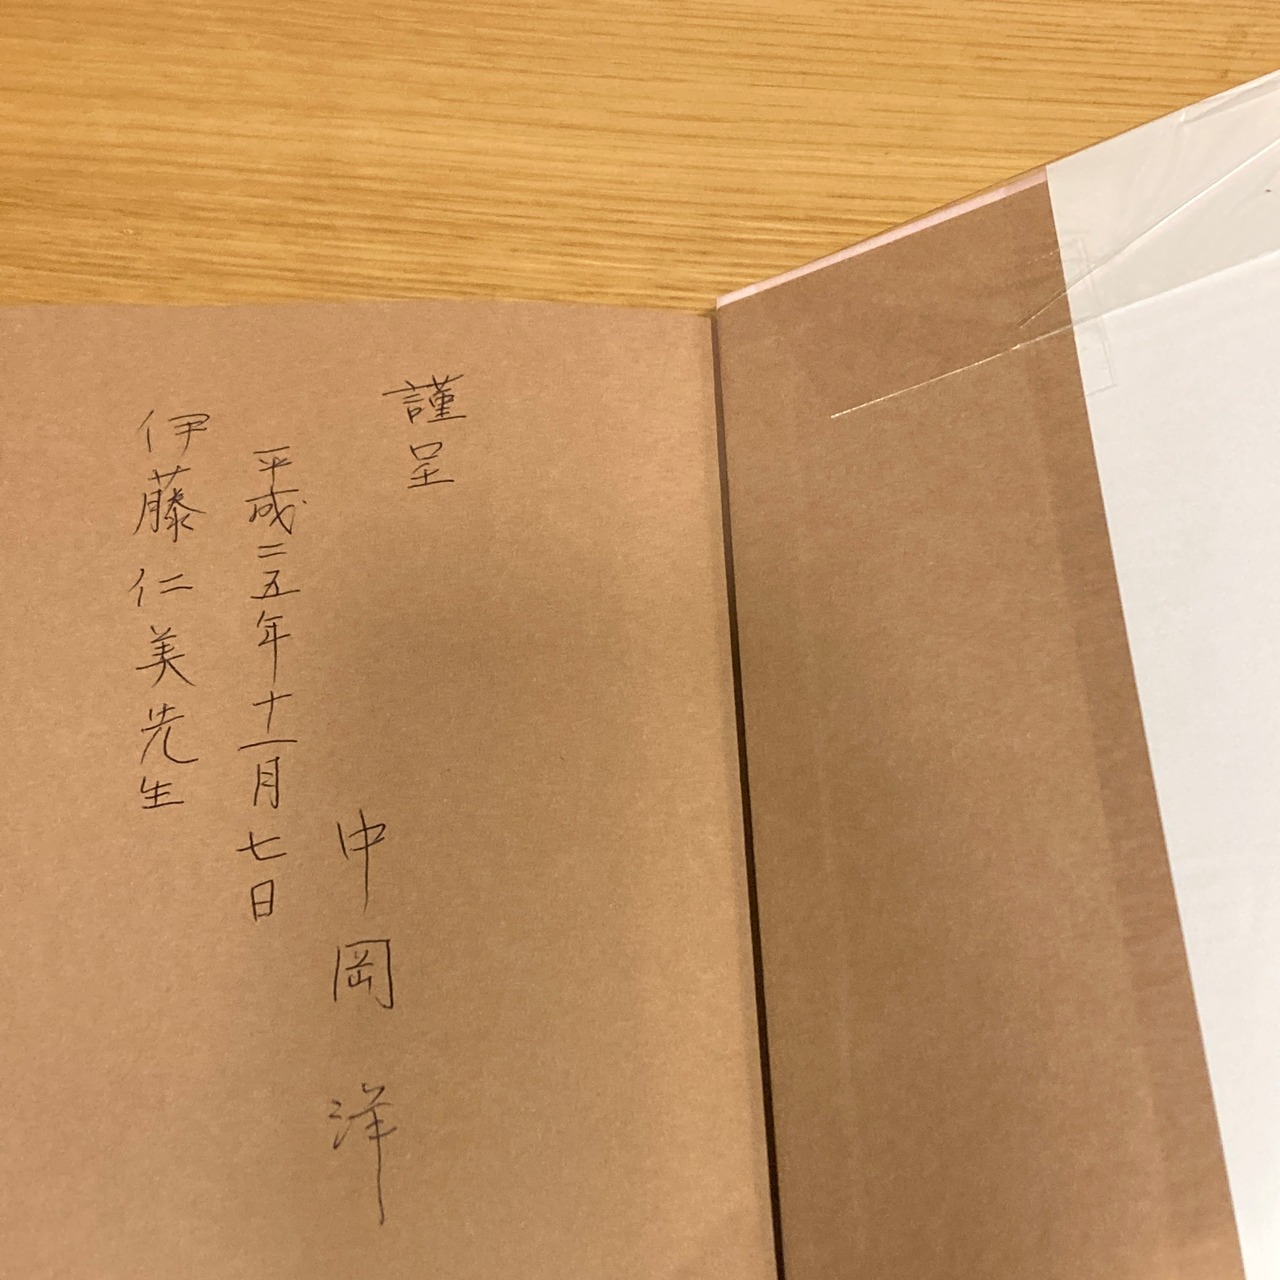 謹呈
中岡洋
平成二五年十一月七日
伊藤仁美先生